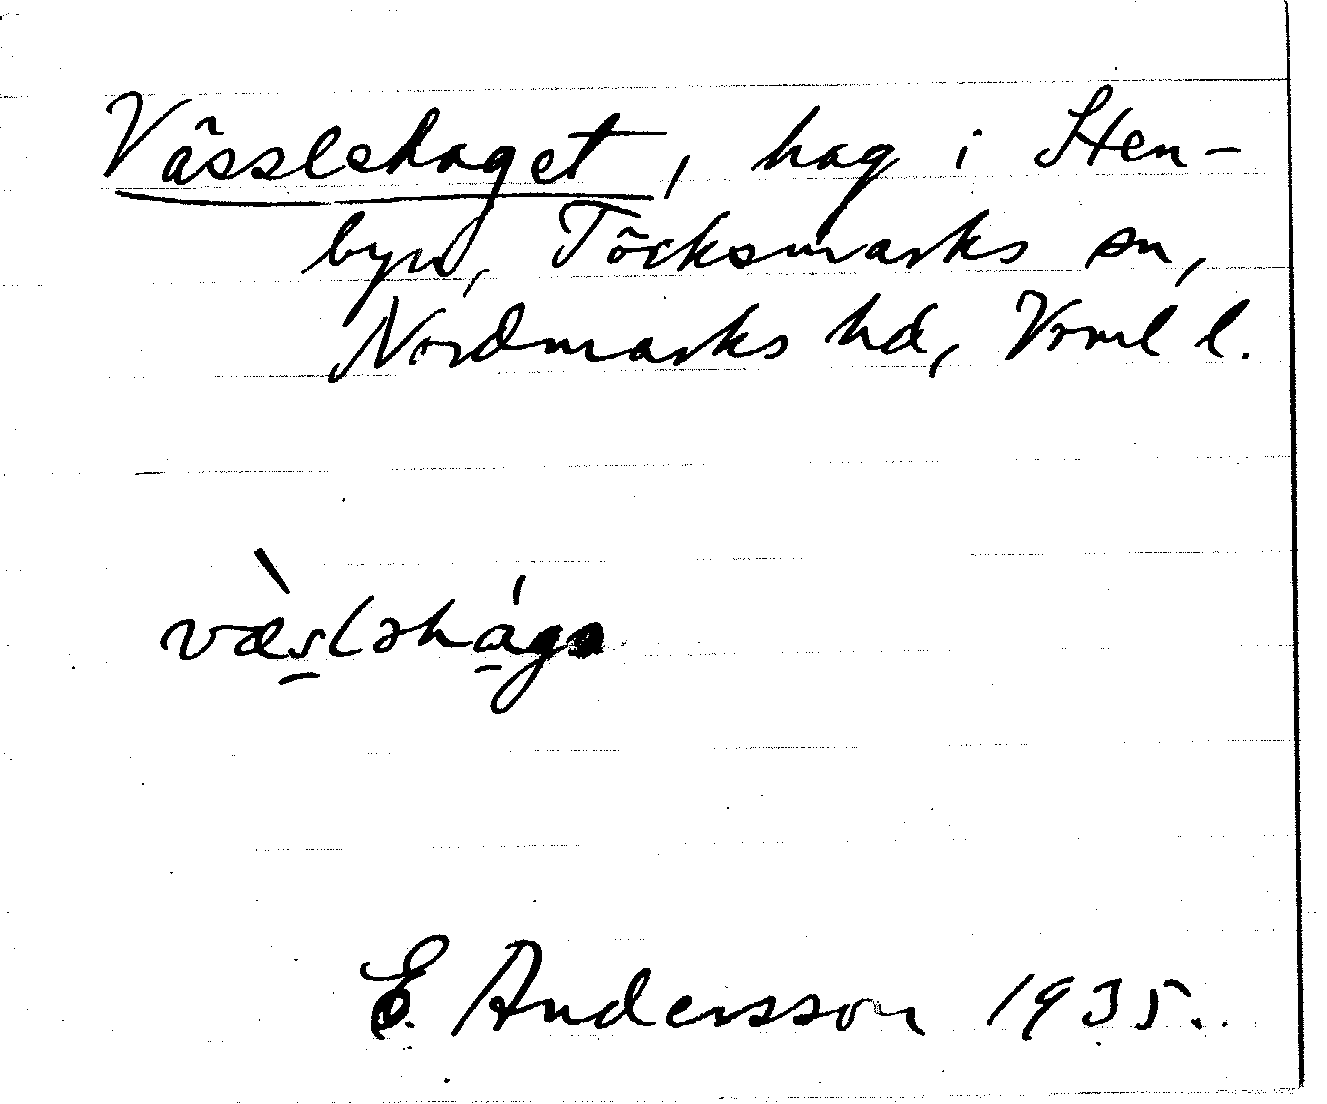 Vässlehaget, hag i Sten-
byn, Töcksmarks sn,
Nordmarks hd, Vrml l.
væ̀sləhága
E. Andersson 1935.